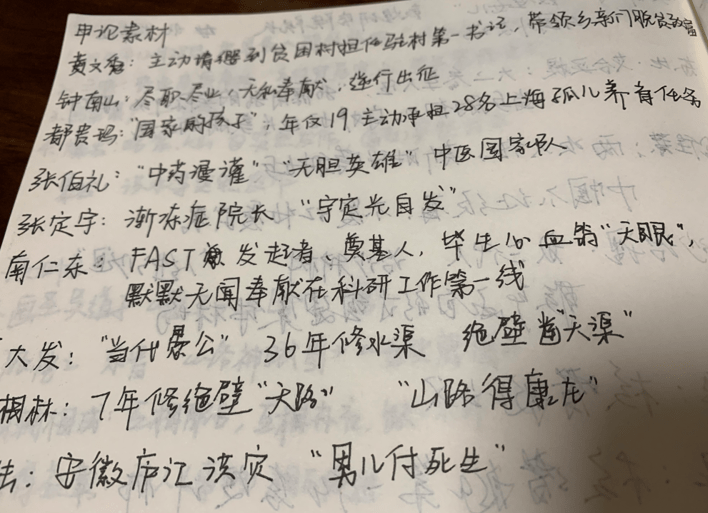 申论素材
黄文秀：主动请缨到贫困村担任驻村第一书记，带领乡亲们脱贫致富
钟南山：尽职尽业，无私奉献，逆行出征
都贵玛："国家的孩子"，年仅19主动承担28名上海孤儿养育任务
张伯礼："中药漫灌""无胆英雄"中医国家队
张定宇：渐冻症院长 "宇定光自发"
南仁东：FAST 发起者、奠基人，毕生心血铸"天眼"，
默默无闻奉献在科研工作第一线
大发："当代愚公" 36年修水渠 绝壁凿"天渠"
相林：7年修绝壁"天路" "山路得康庄"
法：安徽庐江洪灾 "男儿付死生"